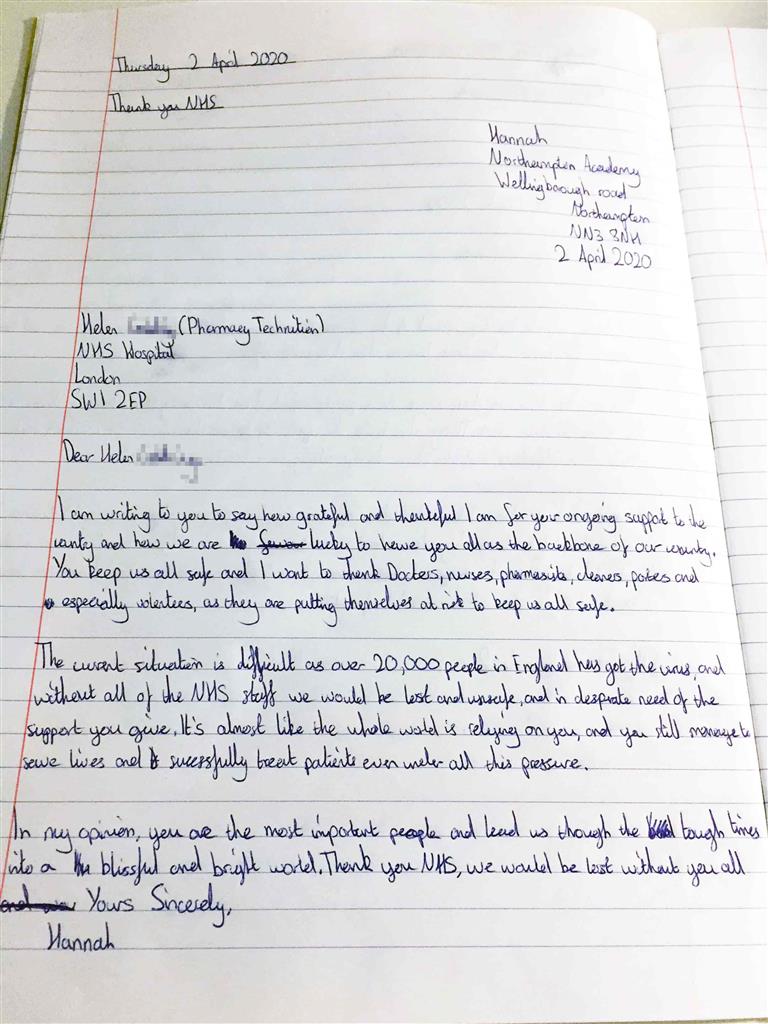 Thursday 2 April 2020
Thank you NHS
Hannah
Northampton Academy
Wellingborough road
Northampton
NN3 8NH
2 April 2020
Helen (Pharmacy Technitien)
NHS Hospital
London
SW1 2EP
Dear Helen
I am writing to you to say how grateful and thankful I am for your ongoing support to the
country and how we are lucky to have you all as the backbone of our country.
You keep us all safe and I want to thank Doctors, nurses, pharmasists, cleaners, porters and
especially volentees, as they are putting themselves at risk to keep us all safe.
The current situation is difficult as over 20,000 people in England has got the virus, and
without all of the NHS staff we would be lost and unsafe, and in desprate need of the
support you give. It's almost like the whole world is relying on you, and you still manage to
save lives and sucessfully treat patients even under all this pressure.
In my opinion, you are the most important people and lead us though the tough times
into a blissful and bright world. Thank you NHS, we would be lost without you all
Yours Sincerely,
Hannah